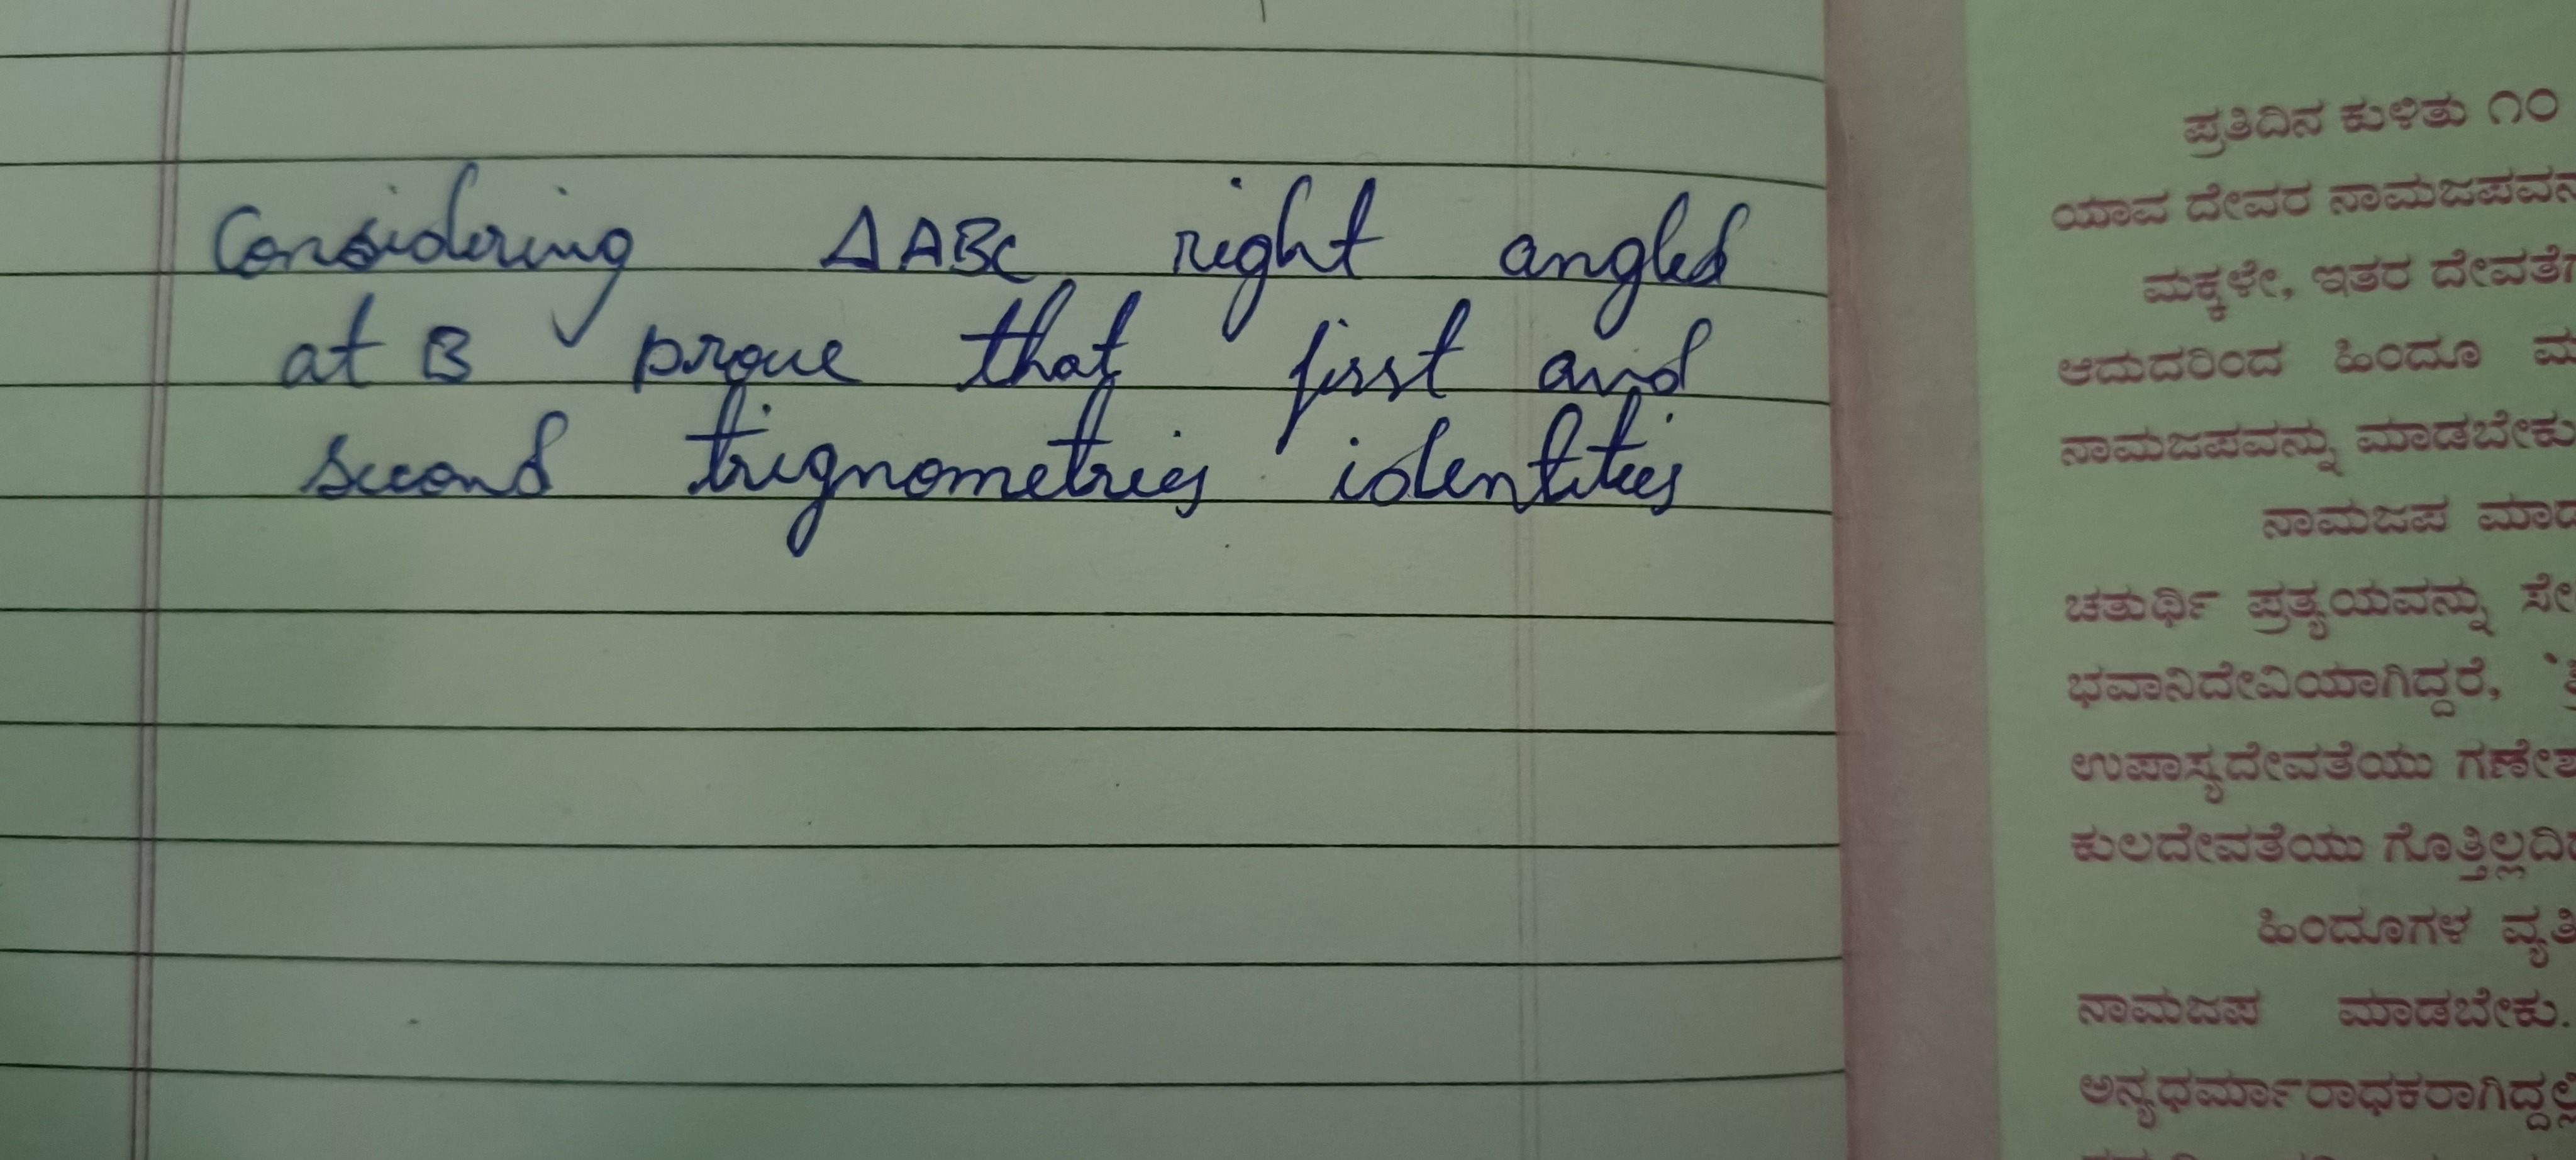 Considering ΔABC right angled
at B prove that first and
second trignometries identities
ಪ್ರತಿದಿನ ಕುಳಿತು ೧೦
ಯಾವ ದೇವರ
ಮಕ್ಕಳೇ, ಇತರ
ಆದುದರಿಂದ ಹಿಂದೂ
ನಾಮಜಪವನ್ನು ಮಾಡಬೇಕು
ನಾಮಜಪ
ಚತುರ್ಥಿ ಪ್ರತ್ಯಯವನ್ನು
ಭವಾನಿದೇವಿಯಾಗಿದ್ದರೆ,
ಉಪಾಸ್ಯದೇವತೆಯು
ಕುಲದೇವತೆಯು
ಹಿಂದೂಗಳ
ನಾಮಜಪ ಮಾಡಬೇಕು.